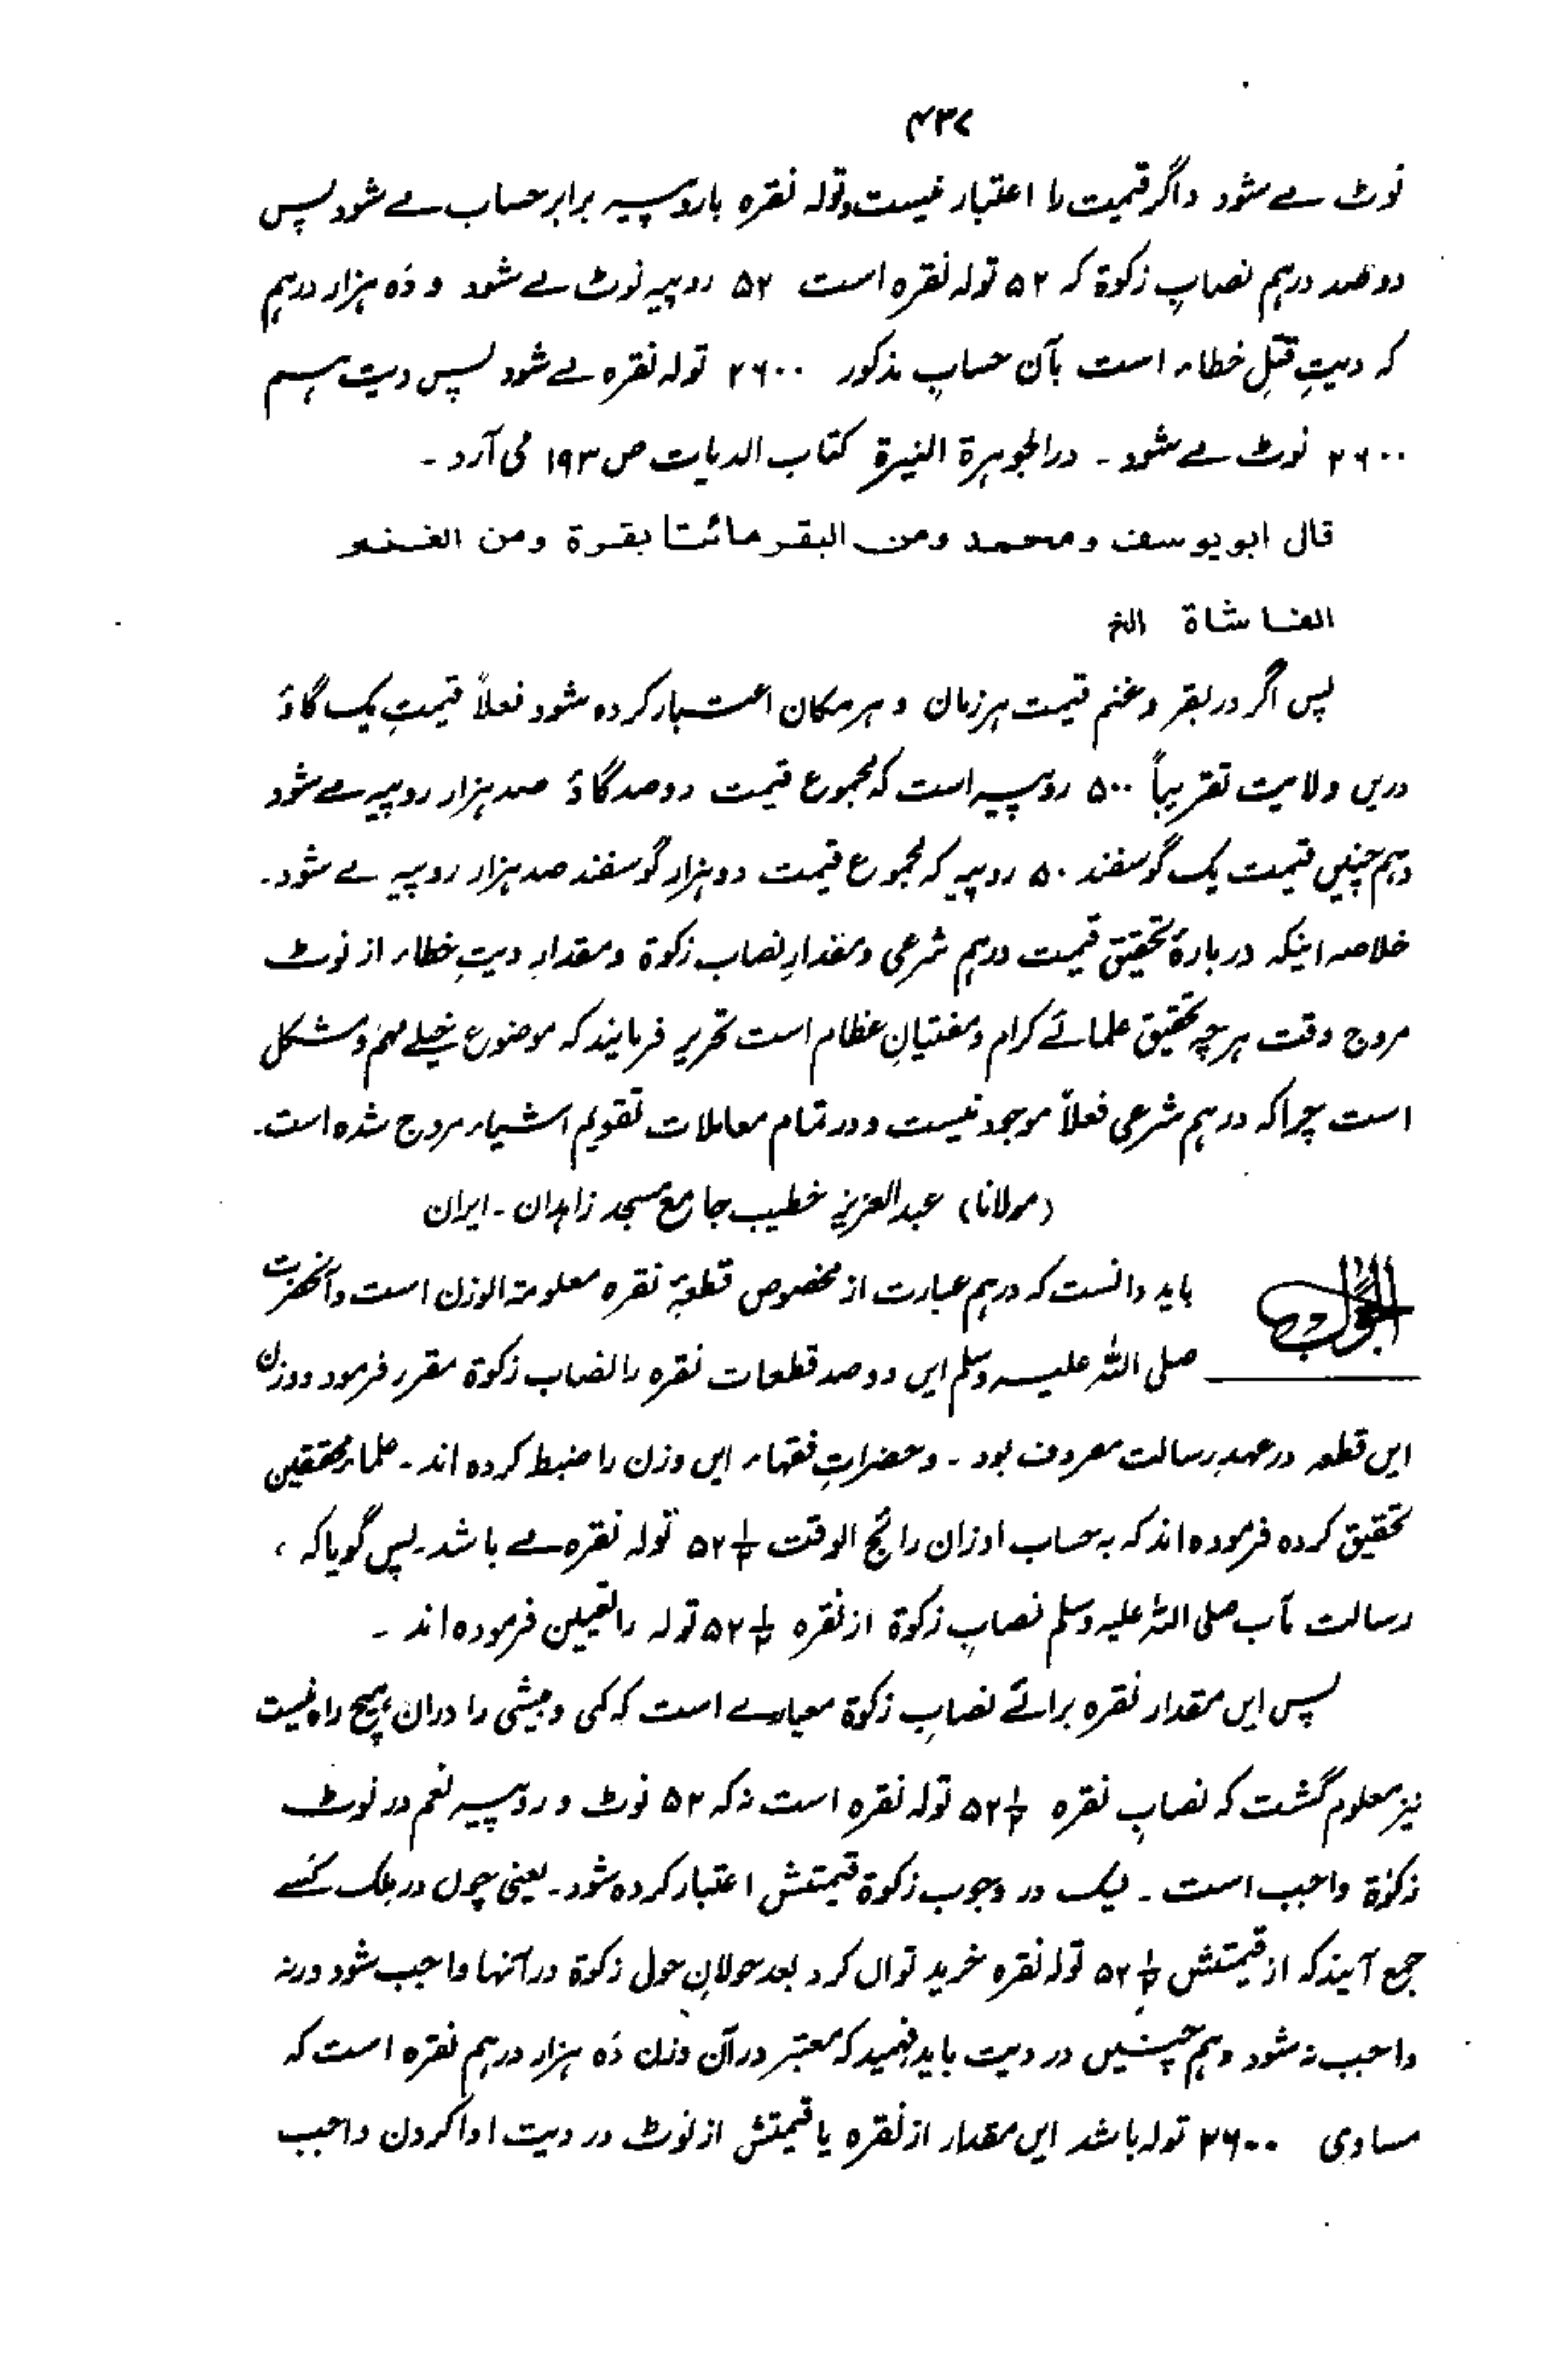 ۴۳۷
نوٹ مے شود واگر قیمت را اعتبار نیست و تولہ نقرہ باروپیہ برابر حساب مے شود پس
دو صد درہم نصابِ زکوٰة کہ ۵۲ تولہ نقرہ است ۵۲ روپیہ نوٹ مے شود و دَہ ہزار درہم
کہ دیتِ قتلِ خطاء است بآن حسابِ مذکور ۲۶۰۰ تولہ نقرہ مے شود پس دیت ہم
۲۶۰۰ نوٹ مے شود ۔ درالجوہرة النیرة کتاب الدیات ص ۱۹۳ می آرد ۔
قال ابو یوسف و محمد ومن البقر مائتا بقرة ومن الغنم
الفا شاة الخ
پس اگر در بقر و غنم قیمت ہر زمان و ہر مکان اعتبار کردہ شود فعلاً قیمتِ یک گاؤ
دریں ولایت تقریباً ۵۰۰ روپیہ است کہ مجموع قیمت دو صد گاؤ صد ہزار روپیہ مے شود
وہم چنیں قیمت یک گوسفند ۵۰ روپیہ کہ مجموع قیمت دو ہزار گوسفند صد ہزار روپیہ مے شود۔
خلاصہ اینکہ دربارۂ تحقیق قیمت درہم شرعی و مقدارِ نصاب زکوٰة و مقدارِ دیتِ خطاء از نوٹ
مروج وقت ہرچہ تحقیق علمائے کرام و مفتیانِ عظام است تحریر فرمایند کہ موضوع خیلے مہم و مشکل
است چراکہ درہم شرعی فعلاً موجود نیست و در تمام معاملات تقویم اشیاء مروج شدہ است۔
(مولانا) عبدالعزیز خطیب جامع مسجد زاہدان ۔ ایران
الجواب باید دانست کہ درہم عبارت از مخصوص قطعۂ نقرہ معلومة الوزن است وآنحضرت
صلی اللہ علیہ وسلم ایں دو صد قطعات نقرہ را نصاب زکوٰة مقرر فرمود ووزن
ایں قطعہ در عہدِ رسالت معروف بود ۔ و حضراتِ فقہاء ایں وزن را ضبط کردہ اند ۔ علماء محققین
تحقیق کردہ فرمودہ اند کہ بہ حساب اوزان رائج الوقت ۵۲ ۱/۲ تولہ نقرہ مے باشد۔ پس گویا کہ ،
رسالت مآب صلی اللہ علیہ وسلم نصابِ زکوٰة از نقرہ ۵۲ ۱/۲ تولہ را تعیین فرمودہ اند ۔
پس ایں مقدار نقرہ برائے نصابِ زکوٰة معیارے است کہ کمی و بیشی را دران ہیچ راہ نیست
نیز معلوم گشت کہ نصابِ نقرہ ۵۲ ۱/۲ تولہ نقرہ است نہ کہ ۵۲ نوٹ و روپیہ نعم در نوٹ
زکوٰة واجب است ۔ لیک در وجوب زکوٰة قیمتش اعتبار کردہ شود۔ یعنی چوں در ملک کسے
جمع آیند کہ از قیمتش ۵۲ ۱/۲ تولہ نقرہ خرید تواں کرد بعد حولانِ حول زکوٰة در آنہا واجب شود ورنہ
واجب نہ شود وہم چنیں در دیت باید فہمید کہ معتبر درآن وزن دَہ ہزار درہم نقرہ است کہ
مساوی ۲۶۰۰ تولہ باشد ایں مقدار از نقرہ یا قیمتش از نوٹ در دیت ادا کردن واجب